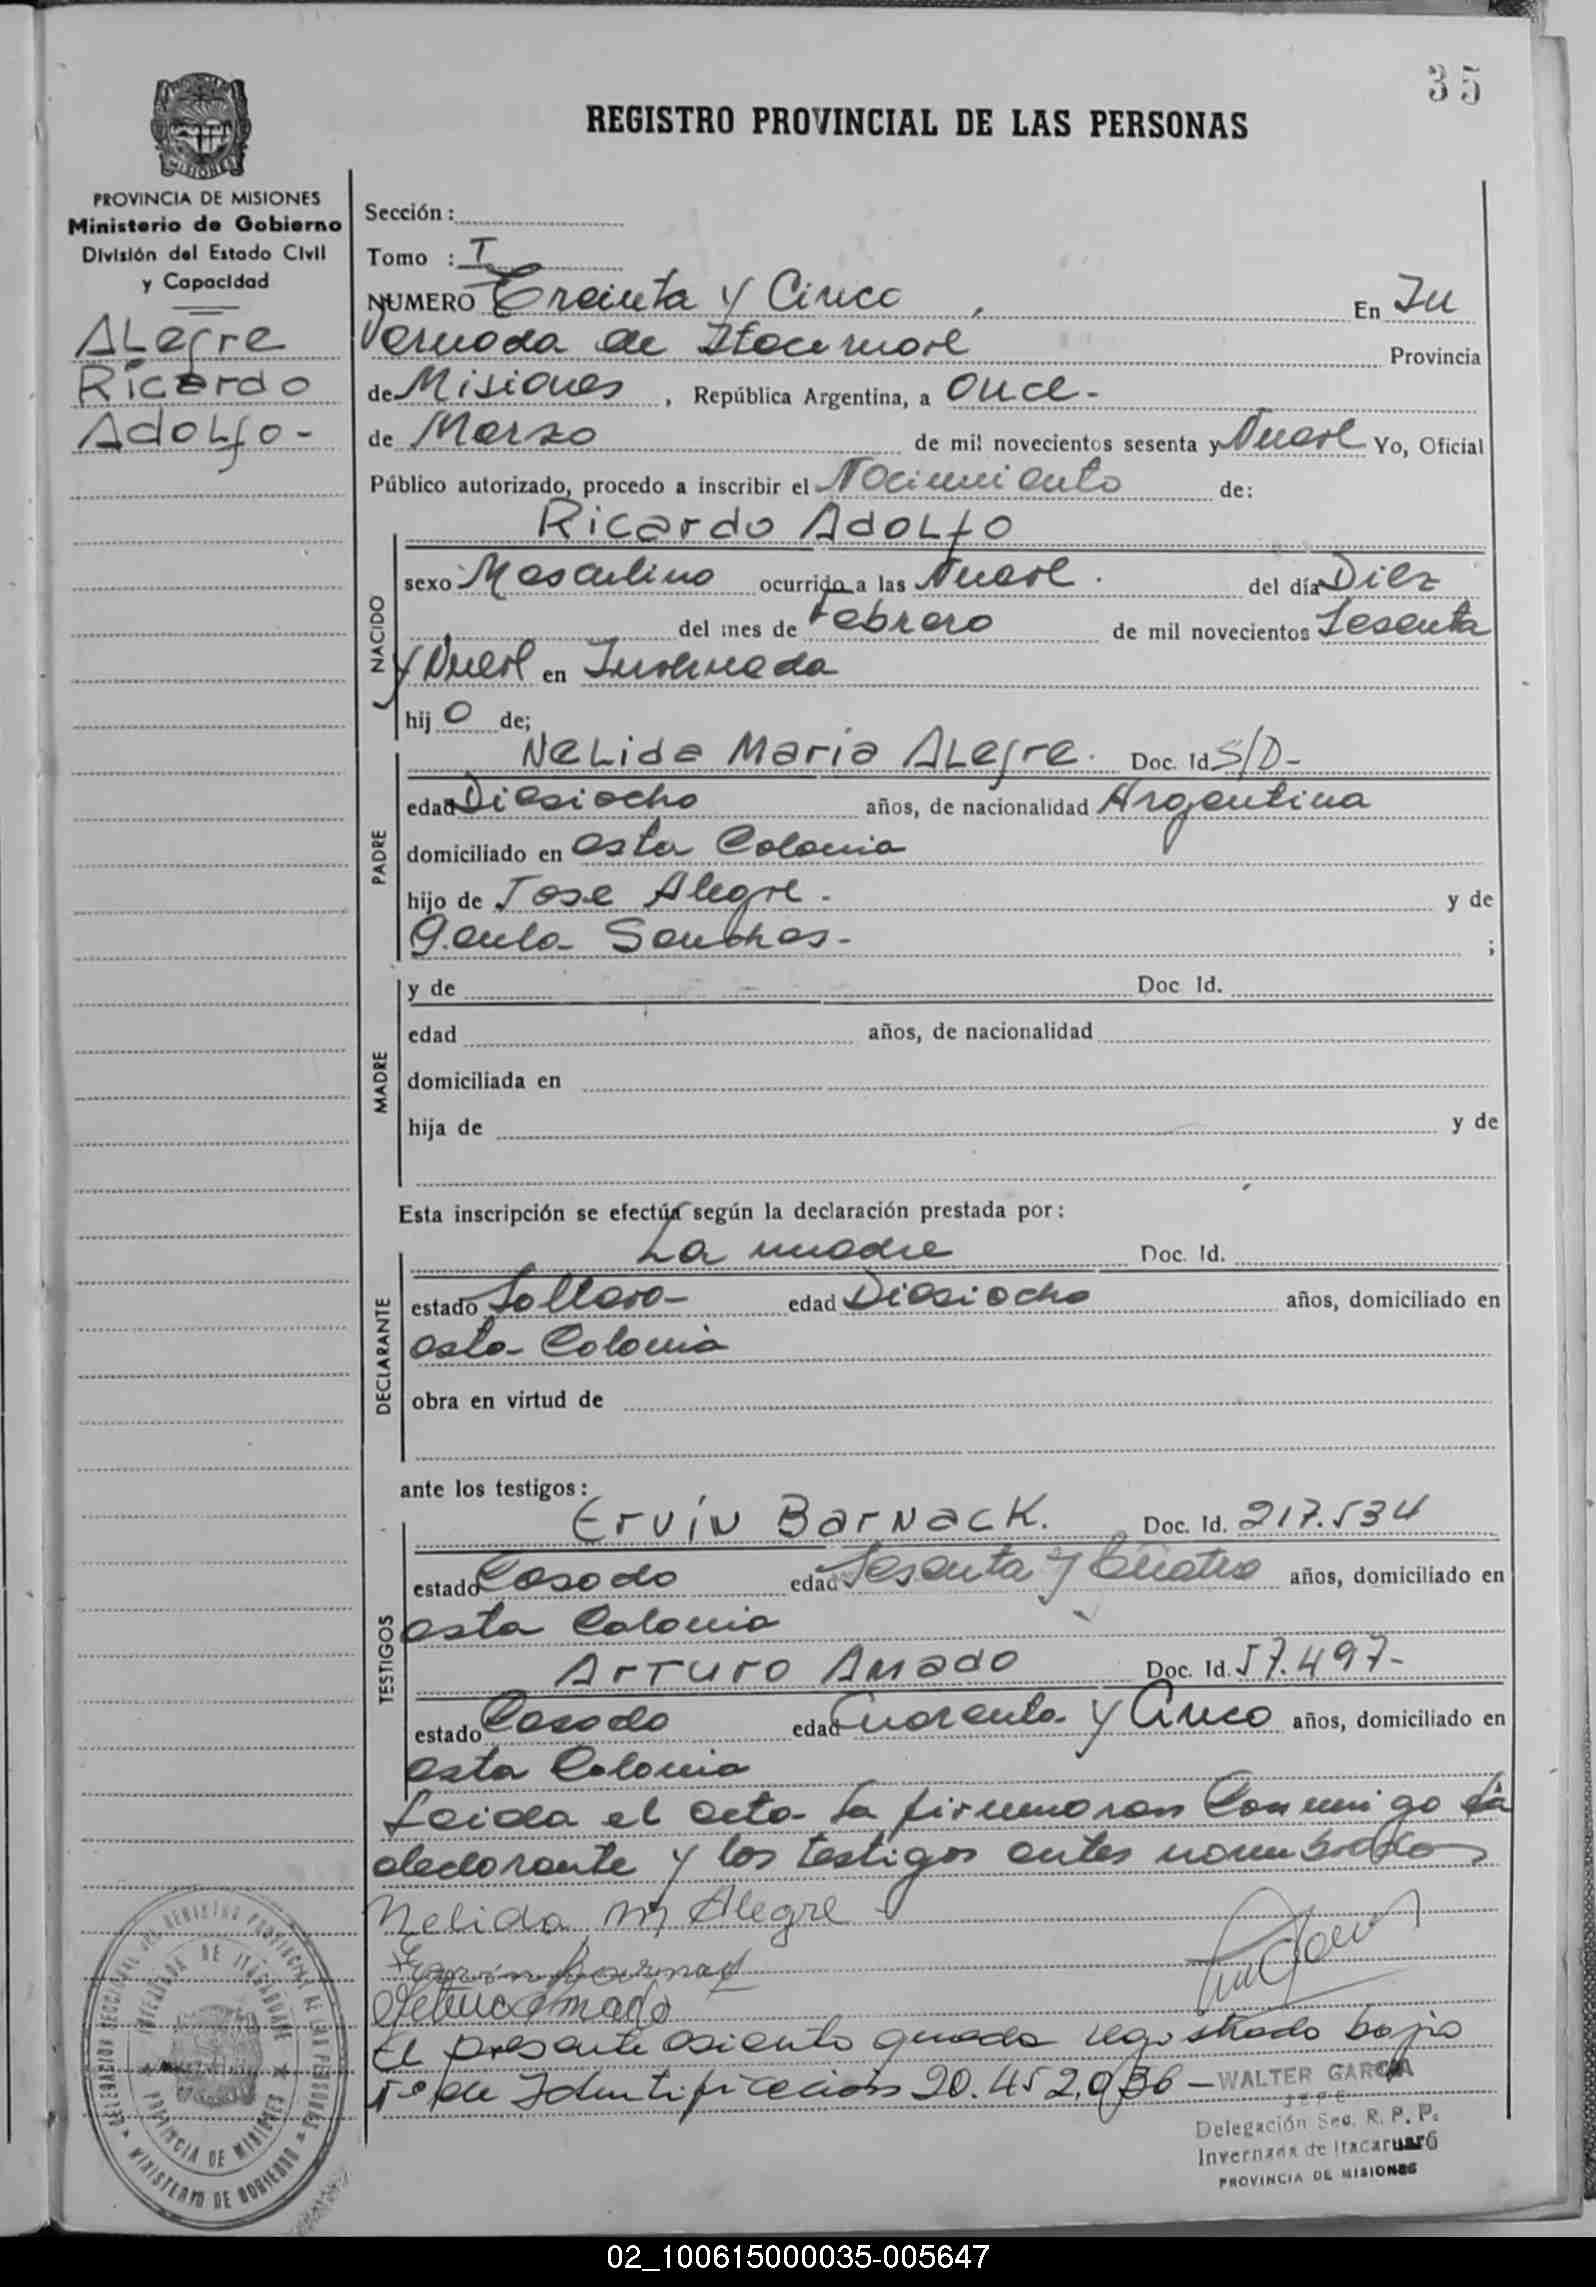 35
REGISTRO PROVINCIAL DE LAS PERSONAS
MISIONES
PROVINCIA DE MISIONES
Ministerio de Gobierno
División del Estado Civil
y Capacidad
ALegre
Ricardo
AdoLfo-
Sección:
Tomo : I
NUMERO Treinta y Cinco , En In
vernada de Itacaruaré Provincia
de Misiones , República Argentina, a Once-
de Marzo de mil novecientos sesenta y Nueve Yo, Oficial
Público autorizado, procedo a inscribir el Nacimiento de:
NACIDO
Ricardo AdoLfo
sexo Masculino ocurrido a las Nueve. del día Diez
del mes de Febrero de mil novecientos Sesenta
y Nueve en Invernada
hij o de;
PADRE
NeLida Maria ALegre. Doc. Id. S/D-
edad Diesiocho años, de nacionalidad Argentina
domiciliado en esta Colonia
hijo de Jose Alegre. y de
Sanches- ;
MADRE
y de Doc. Id.
edad años, de nacionalidad
domiciliada en
hija de y de
Esta inscripción se efectúa según la declaración prestada por:
DECLARANTE
La madre Doc. Id.
estado Soltera- edad Diesiocho años, domiciliado en
esta- Colonia
obra en virtud de
ante los testigos:
TESTIGOS
Ervin Barnack. Doc. Id. 217.534
estado Casado edad Sesenta y Cuatro años, domiciliado en
esta Colonia
Arturo Amado Doc. Id. 57.497-
estado Casado edad Cuarenta y Cinco años, domiciliado en
esta Colonia
Leida el acta- La firmaron Conmigo la
declarante y los testigos antes nombrados
Nelida M Alegre
Amado
El presente asiento queda registrado bajo
de Identificacion 20.452.036 - WALTER GARCIA
JEFE
Delegación Sec. R. P. P.
Invernada de Itacaruaré
PROVINCIA DE MISIONES
DELEGACION SECCIONAL DEL REGISTRO PROVINCIAL DE LAS PERSONAS
INVERNADA DE ITACARUARE
PROVINCIA DE MISIONES
MINISTERIO DE GOBIERNO
02_100615000035-005647